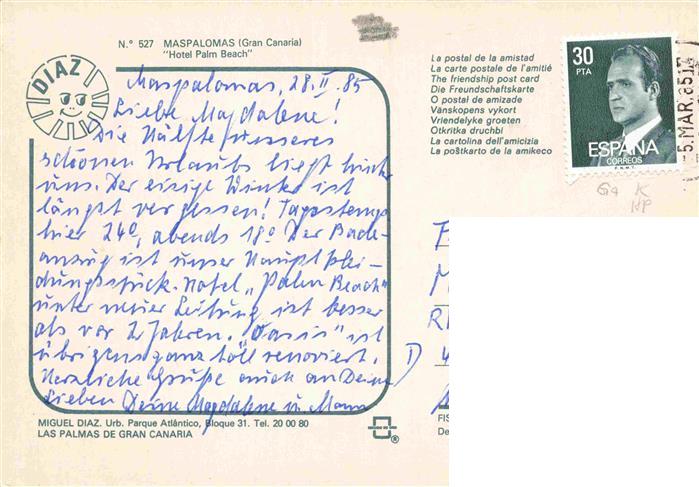 N.° 527 MASPALOMAS (Gran Canaria)
"Hotel Palm Beach"
DIAZ
Maspalomas, 28.II.85
Liebe Magdalene!
Die Hälfte unseres
schönen Urlaubs liegt hinter
uns. Der eisige Winter ist
längst vergessen! Tagestemp.
hier 24°, abends 18° Der Bade-
anzug ist unser Hauptklei-
dungsstück. Hotel "Palm Beach"
unter neuer Leitung ist besser
als vor 2 Jahren. "Oasis" ist
übrigens ganz toll renoviert.
Herzliche Grüße auch an Deine
Lieben Deine Magdalene u.
MIGUEL DIAZ. Urb. Parque Atlántico, Bloque 31. Tel. 20 00 80
LAS PALMAS DE GRAN CANARIA
La postal de la amistad
La carte postale de l'amitié
The friendship post card
Die Freundschaftskarte
O postal de amizade
Vänskapens vykort
Vriendelyke groeten
Otkritka druchbi
La cartolina dell'amicizia
La poŝtkarto de la amikeco
30
PTA
ESPAÑA
CORREOS
F.N.M.T.
5.MAR.85
®